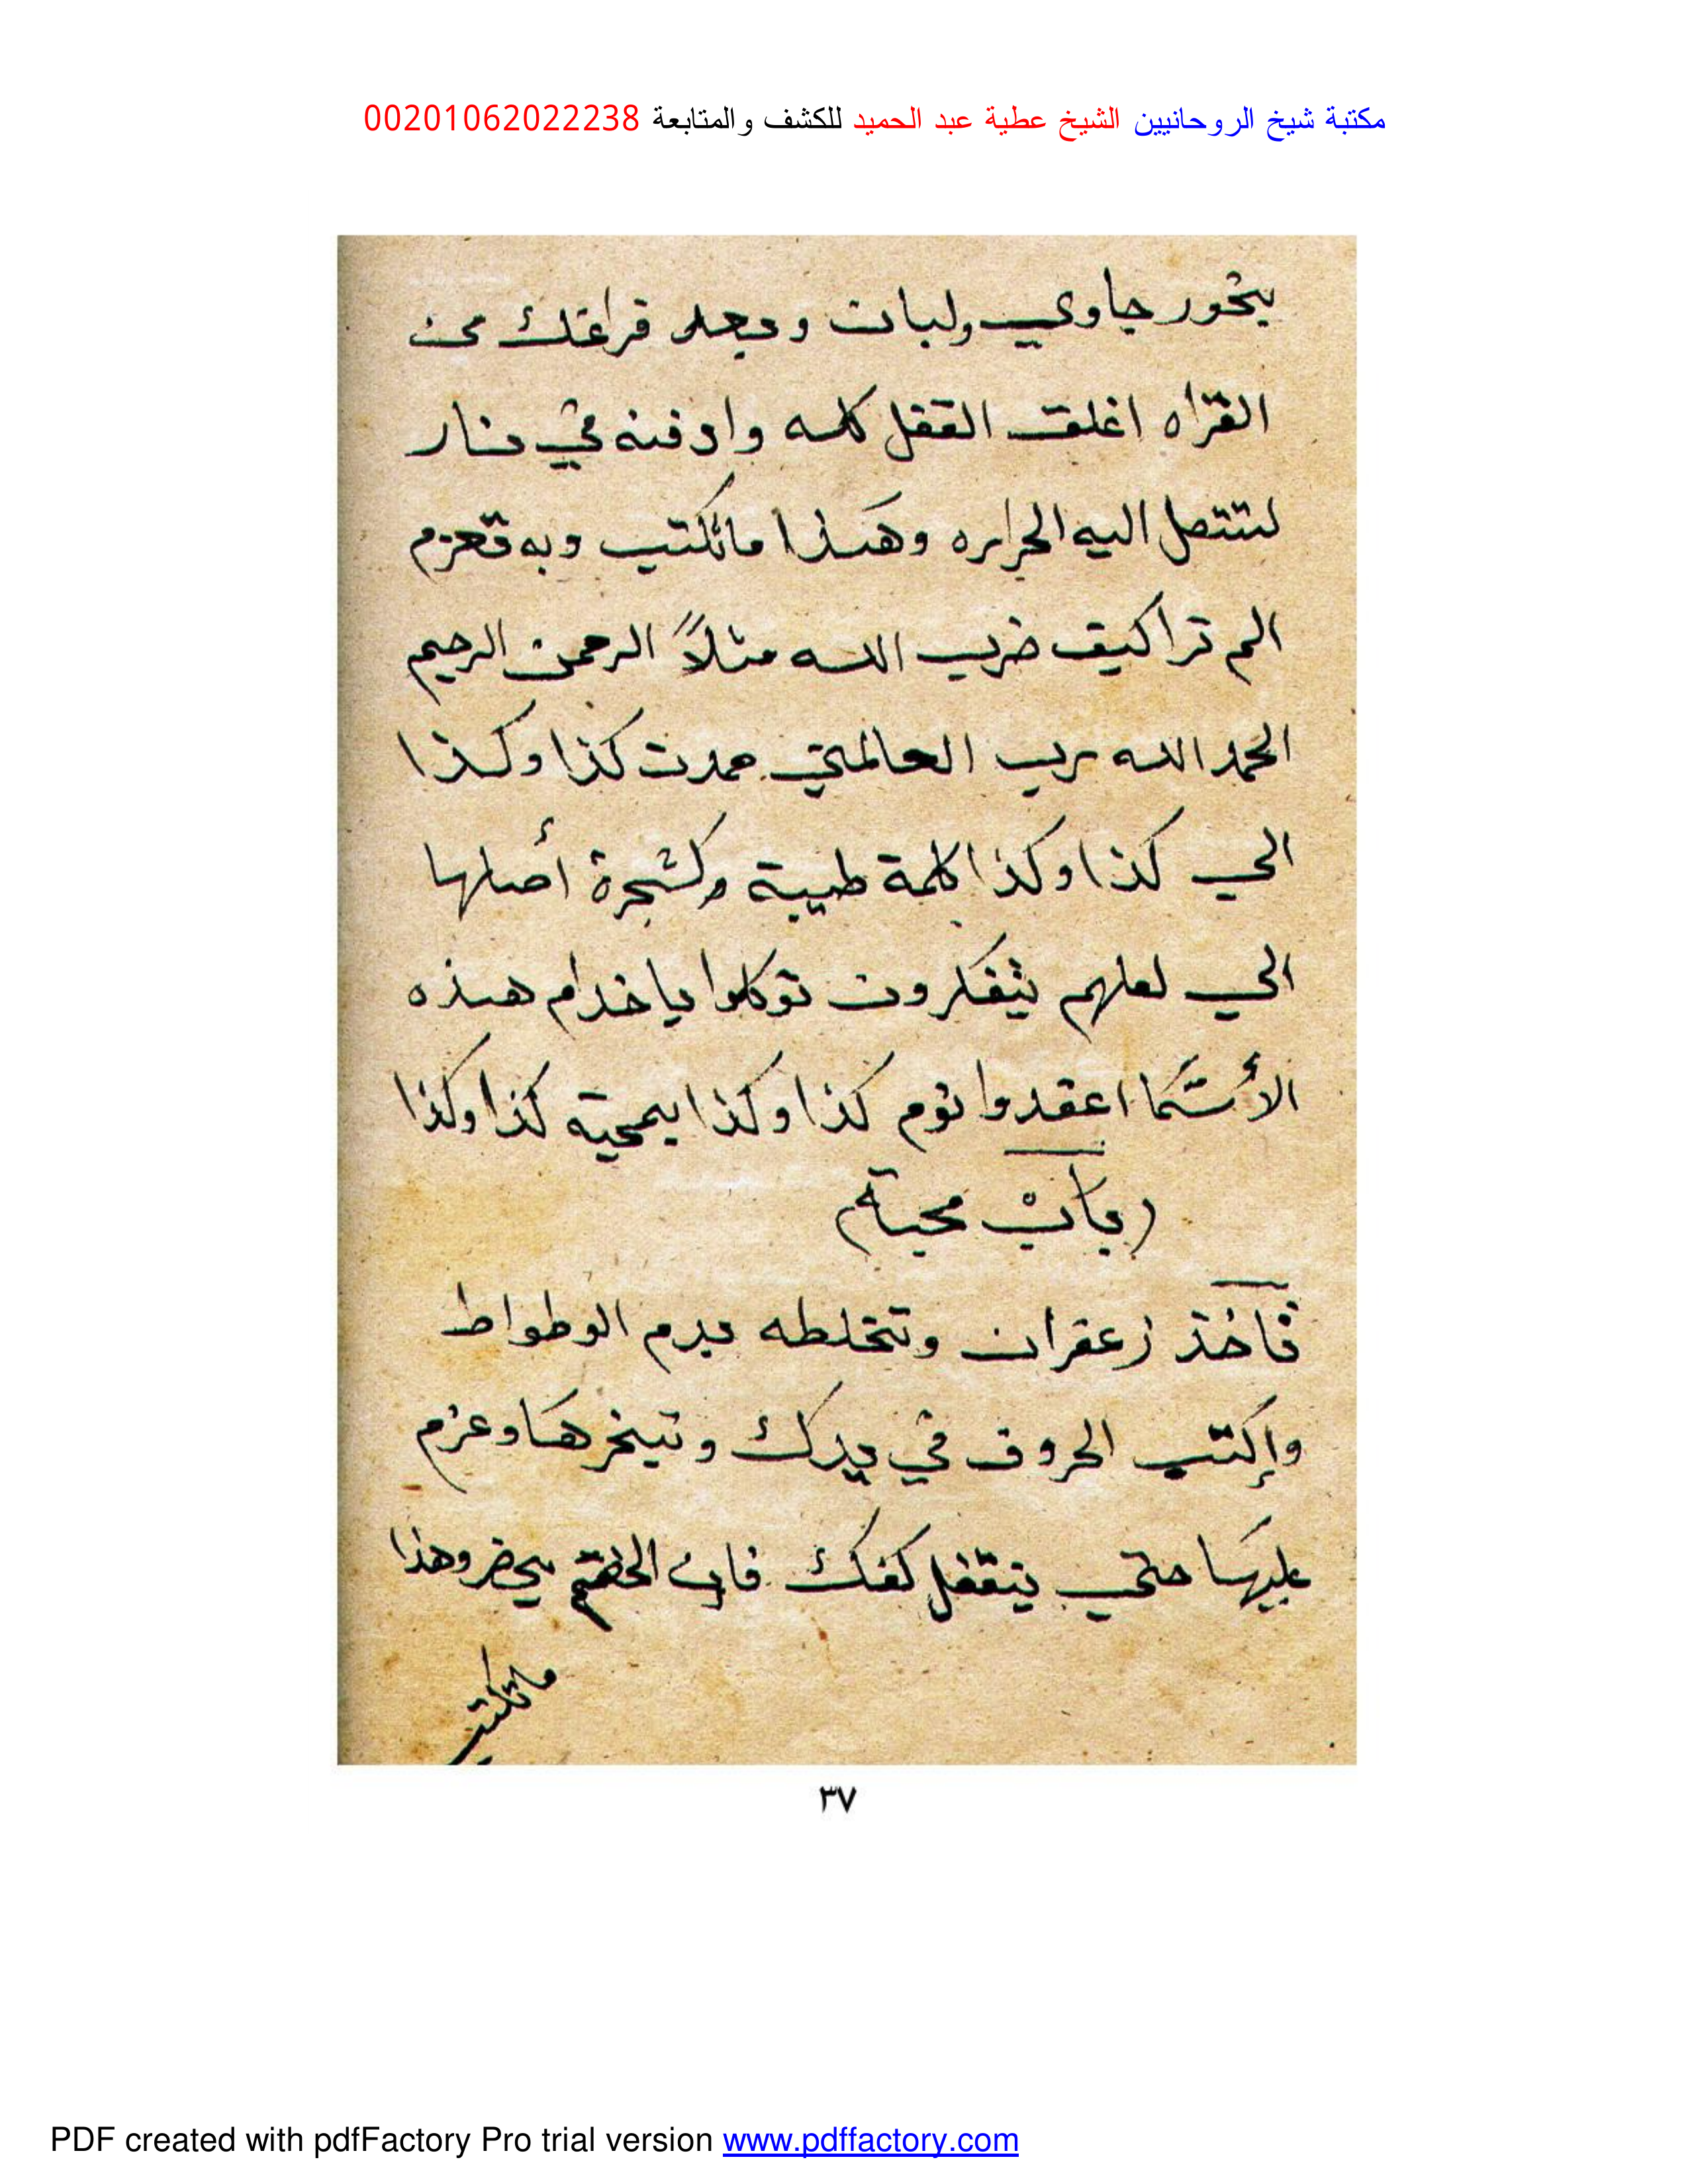 مكتبة شيخ الروحانيين الشيخ عطية عبد الحميد للكشف والمتابعة 00201062022238
بخور جاوي ولبان وبعد فراغتك من
القراه اغلق القفل كله وادفنه في نار
لتتصل اليه الحراره وهذا ماتكتب وبه تعزم
الم ترا كيف ضرب الله مثلاً الرحمن الرحيم
الحمد الله رب العالمين عمدت كذا وكذا
الي كذا وكذا كلمة طيبة وكشجرة أصلها
الي لعلهم يتفكرون توكلوا ياخدام هذه
الأسما اعقدوا نوم كذا وكذا بمحبة كذا وكذا
(باب محبة)
تاخذ زعفران وتخلطه بدم الوطواط
وإكتب الحروف في يدك وتبخرها وعزم
عليها حتي يتقفل كفك فان الخصم يحضر وهذا
ماتكتب
٣٧
PDF created with pdfFactory Pro trial version www.pdffactory.com